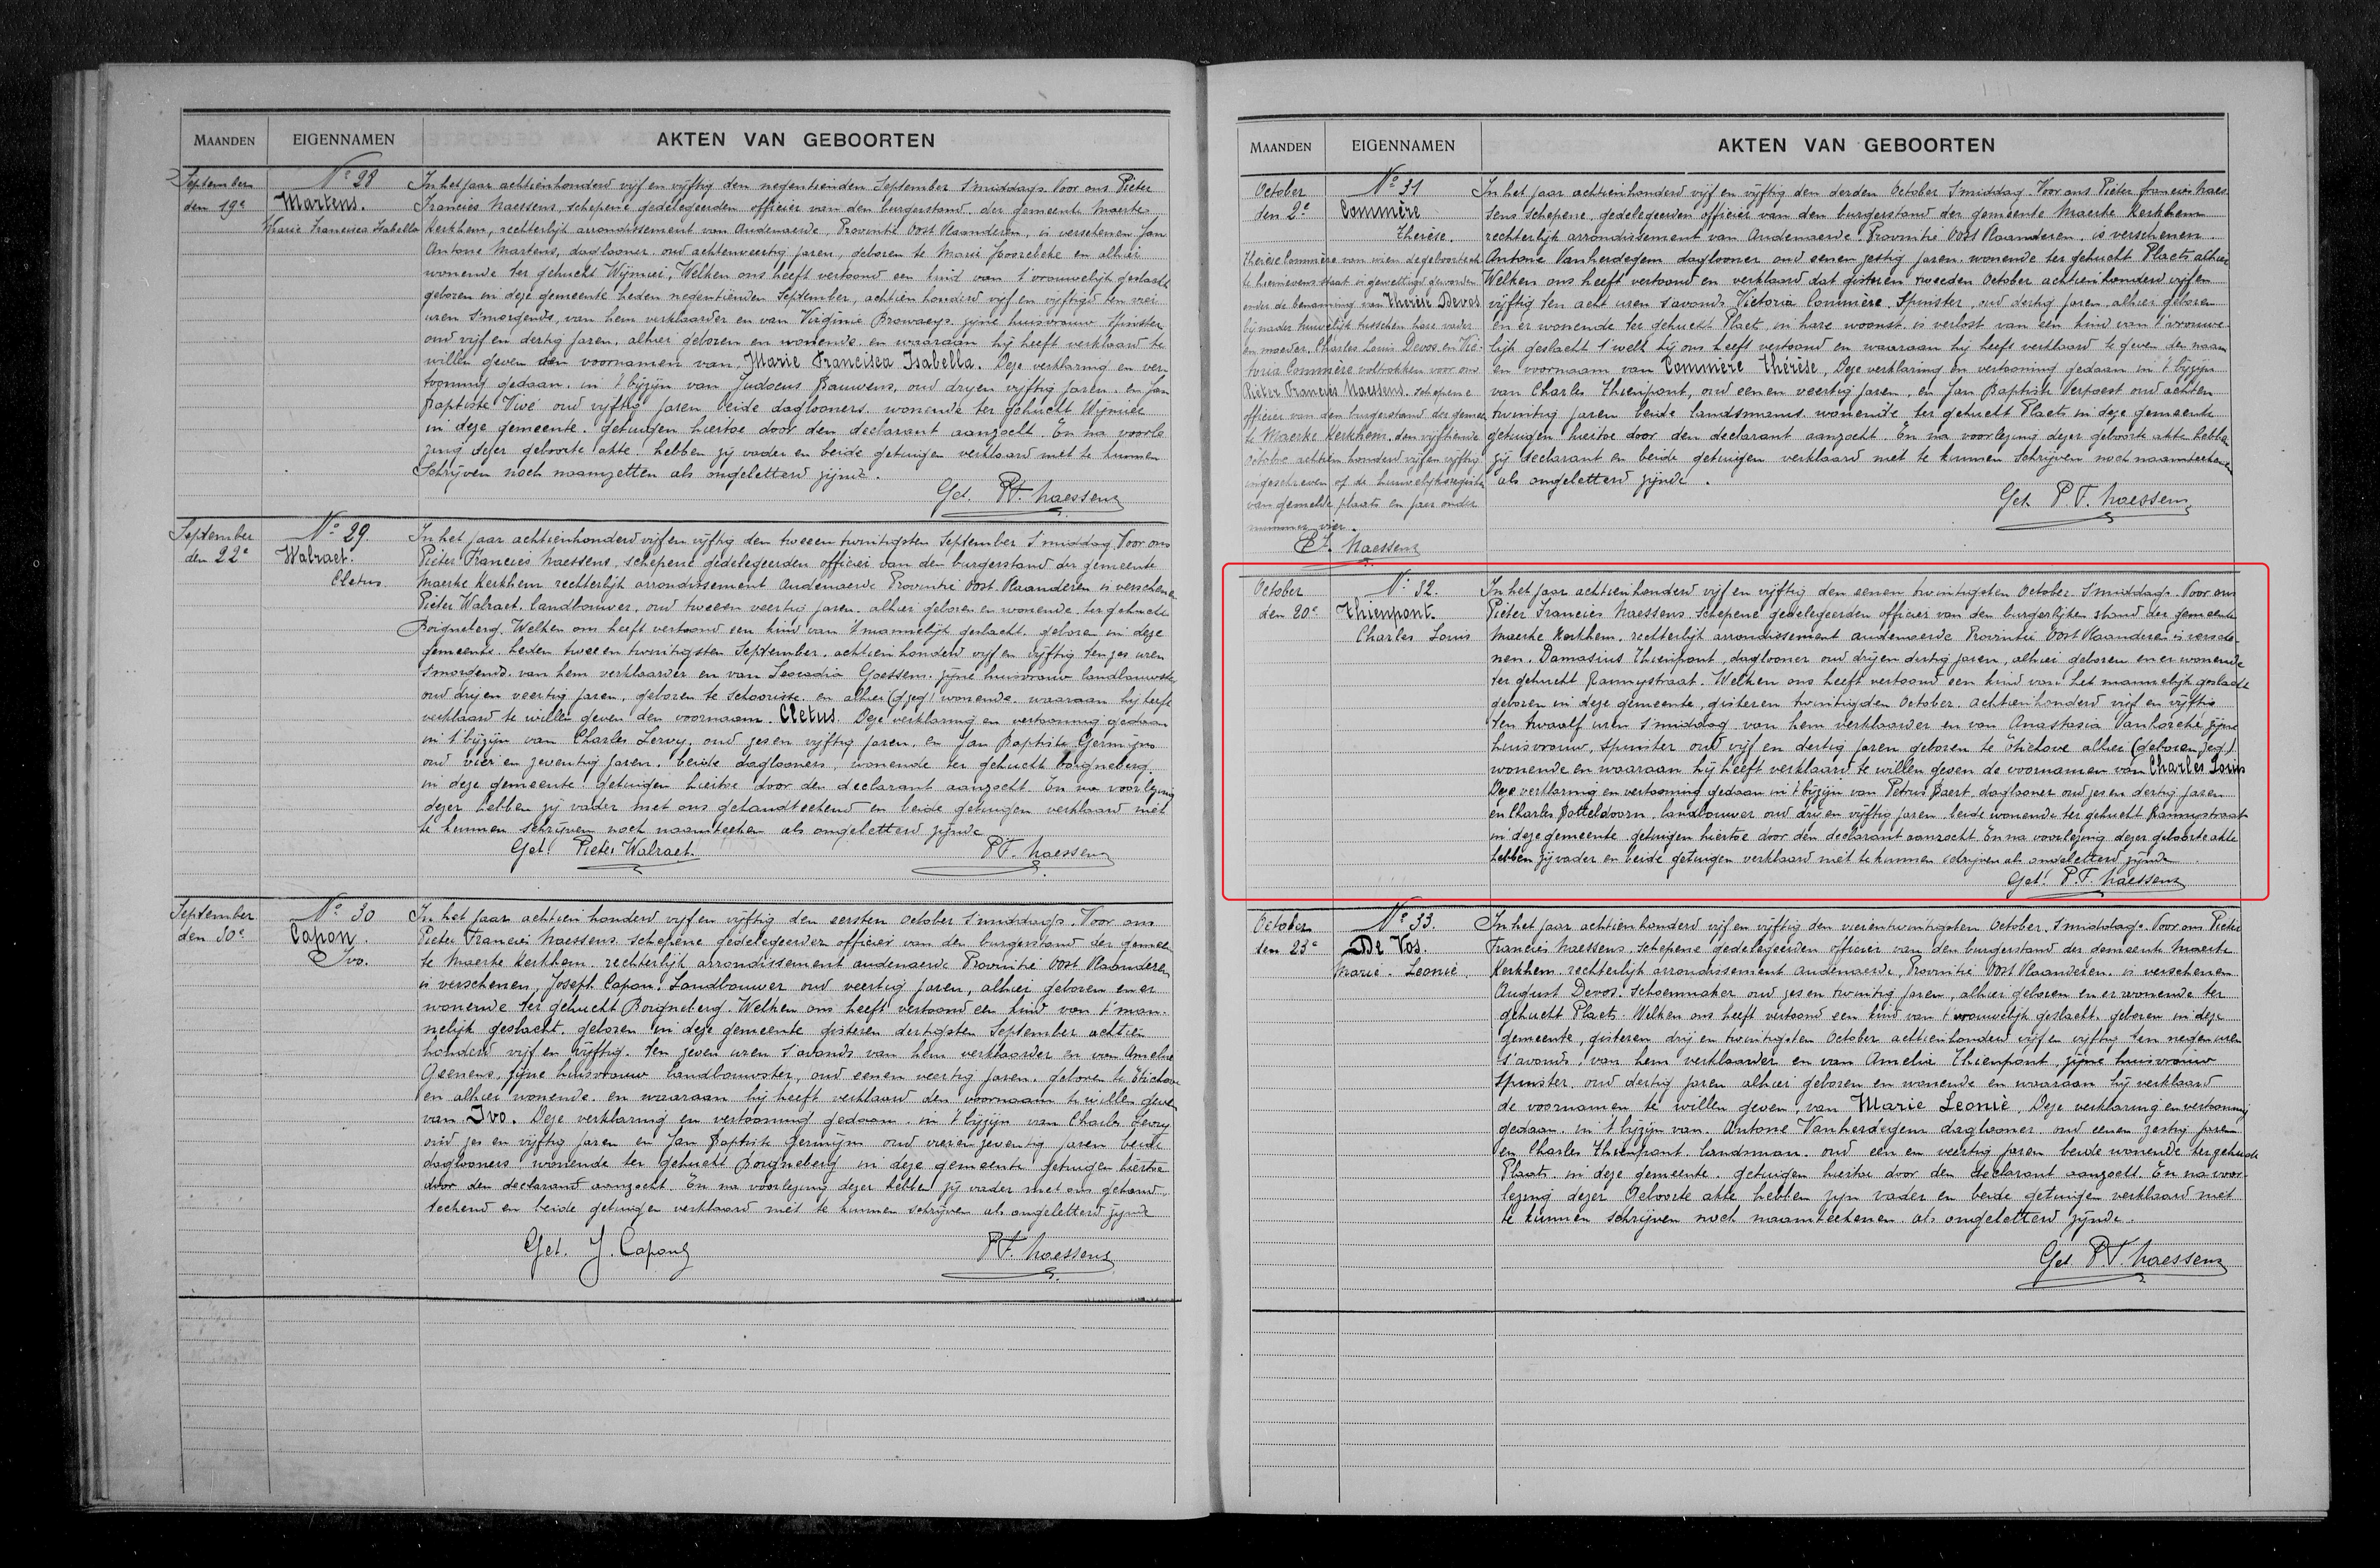 MAANDEN EIGENNAMEN AKTEN VAN GEBOORTEN
September
den 19e
No 28
Martens.
Marie Francisca Isabella
In het jaar achtienhonderd vijf en vijftig den negentienden September s'middags. Voor ons Pieter
Francies Naessens, schepene gedelegeerden officier van den burgerstand der gemeente Maerke
Kerkhem, rechterlijk arrondissement van Audenaerde, Provintie Oost Vlaanderen, is verschenen Jan
Antone Martens, daglooner oud achtenveertig jaren, geboren te Marie Hoorebeke en alhier
wonende ter gehucht Wijmier, Welken ons heeft vertoond een kind van 't vrouwelijk geslacht
geboren in deze gemeente heden negentiënden September, achtien honderd vijf en vijftig ten vier
uren s'morgends, van hem verklaarder en van Virginie Browaeys zijne huisvrouw spinster
oud vijf en dertig jaren, alhier geboren en wonende en waaraan hij heeft verklaard te
willen geven den voornamen van, Marie Francisca Isabella. Deze verklaring en ver
tooning gedaan in 't bijzijn van Judocus Bauwens, oud dryen vyftig jaren en Jan
Baptiste Vivé oud vyftig jaren beide daglooners wonende ter gehucht Wijmier
in deze gemeente. getuigen hiertoe door den declarant aanzocht. En na voorle
zing dezer geboorte akte hebben zij vader en beide getuigen verklaard niet te kunnen
Schrijven noch naamzetten als ongeletterd zijnde.
Get. P.F. Naessens
September
den 22e
No 29.
Walraet.
Cletus
In het jaar achtienhonderd vijf en vijftig den tweeen twintigsten September s'middag Voor ons
Pieter Francies Naessens, schepene gedelegeerden officier van den burgerstand der gemeente
Maerke Kerkhem rechterlijk arrondissement Audenaerde Provintie Oost Vlaanderen is verschenen
Pieter Walraet. landbouwer, oud tweeen veertig jaren. alhier geboren en wonende ter gehucht
Boigneberg. Welken ons heeft vertoond een kind van 't mannelijk geslacht. geboren in deze
gemeente heden tweeen twintigsten September. achtien honderd vijf en vijftig ten zes uren
s'morgends. van hem verklaarder en van Leocadia Goessens. zijne huisvrouw landbouwster
oud dryen veertig jaren, geboren te Schoorisse en alhier (gzeg) wonende waaraan hij heeft
verklaard te willen geven den voornaam. Cletus Deze verklaring en vertooning gedaan
in 't bijzijn van Charles Lervy. oud zes en vyftig jaren, en Jan Baptiste Germijns
oud vier en zeventig jaren. beide daglooners, wonende ter gehucht Boigneberg.
in deze gemeente. Getuigen hiertoe door den declarant aanzocht. En na voorlezing
dezer hebben zij vader met ons gehandteekend en beide getuigen verklaard niet
te kunnen schrijven noch naamteeken als ongeletterd zijnde
Get. Pieter Walraet. P.F. Naessens
September
den 30e
No 30
Capon.
Ivo.
In het jaar achtien honderd vijf en vijftig den eersten october s'middags. Voor ons
Pieter Francies Naessens schepene gedelegeerden officier van den burgerstand der gemeen
te Maerke Kerkhem. rechterlijk arrondissement audenaerde Provintie Oost Vlaanderen
is verschenen, Joseph Capon. Landbouwer oud veertig jaren, alhier geboren en er
wonende ter gehucht Boigneberg. Welken ons heeft vertoond een kind van t'man-
nelijk geslacht. geboren in deze gemeente gisteren dertigsten September achtien
honderd vijf en vijftig. ten zeven uren s'avonds van hem verklaarder en van Amelie
Geenens, zijne huisvrouw landbouwster, oud eenen veertig jaren. geboren te Etichove
en alhier wonende. en waaraan hij heeft verklaard den voornaam te willen geven
van Ivo. Deze verklaring en vertooning gedaan. in 't bijzijn van Charles Lervy
oud zes en vijftig jaren en Jan Baptiste Germijns oud vier en zeventig jaren beide
daglooners wonende ter gehucht Boigneberg in deze gemeente getuigen hiertoe
door den declarant aanzocht. En na voorlezing dezer hebben zij vader met ons gehand-
teekend en beide getuigen verklaard niet te kunnen schrijven als ongeletterd zijnde
Get. J. Capon P.F. Naessens
MAANDEN EIGENNAMEN AKTEN VAN GEBOORTEN
October
den 2e
No 31
Commère
Therèse.
Therèse Commère van wien de geboorteakt
te hiernevens staat is gewettigd geworden
onder de benaming van Therèse Devos
bij nader huwelijk tusschen hare vader
en moeder, Charles Louis Devos en Vic-
toria Commère voltrokken voor ons
Pieter Francies Naessens. schepene
officier van den burgerstand der gemeen
te Maerke Kerkhem, den vijftiende
octobre achtien honderd vijf en vijftig
ingeschreven op de huwelijksregister
van gemelde plaats en jaar onder
nummer vier.
P.F. Naessens
In het jaar achtienhonderd vijf en vijftig den derden October s'middag. Voor ons Pieter francies Naes
sens schepene gedelegeerden officier van den burgerstand der gemeente Maerke Kerkhem
rechterlijk arrondissement van Audenaerde. Provintie Oost Vlaanderen, is verschenen
Antone Vanherdegem daglooner oud eenen zestig jaren. wonende ter gehucht Plaets alhier
Welken ons heeft vertoond en verklaard dat gisteren tweeden October achtienhonderd vijf en
vijftig ten acht uren s'avonds Victoria Commère. Spinster, oud dertig jaren, alhier geboren
en er wonende ter gehucht Plaet, in hare woonst is verlost van een kind van t'vrouwe-
lijk geslacht t'welk hij ons heeft vertoond en waaraan hij heeft verklaard te geven den naam
en voornaam van Commère Thérèse, Deze verklaring en vertooning gedaan in 't bijzijn
van Charles Thienpont, oud eenen veertig jaren, en Jan Baptiste Vertoest oud achten
twintig jaren beide landsmans wonende ter gehucht Plaets in deze gemeente
getuigen hiertoe door den declarant aanzocht. En na voorlezing dezer geboorte akte hebben
zij declarant en beide getuigen verklaard niet te kunnen schrijven noch naamteekenen
als ongeletterd zijnde.
Get P.F. Naessens
October
den 20e
No 32.
Thienpont.
Charles Louis
In het jaar achtienhonderd vijf en vijftig den eenen twintigsten October s'middags. Voor ons
Pieter Francies Naessens, schepene gedelegeerden officier van den burgerlijken stand der gemeente
Maerke Kerkhem. rechterlijk arrondissement audenaerde Provintie Oost Vlaanderen is versche-
nen. Damasius Thienpont, daglooner oud drijen dertig jaren, alhier geboren en er wonende
ter gehucht Rannystraat. Welken ons heeft vertoond een kind van het mannelijk geslacht
geboren in deze gemeente, gisteren twintigden October. achtienhonderd vijf en vijftig
ten twaalf uren s'middag van hem verklaarder en van Anastasia Vanhoecke zijne
huisvrouw, spinster oud vijf en dertig jaren geboren te Etichove alhier (geboren zeg)
wonende en waaraan hij heeft verklaard te willen geven de voornamen van Charles Louis
Deze verklaring en vertooning gedaan in 't bijzijn van Petrus Baert, daglooner oud zes en dertig jaren
en Charles Botteldoorn, landbouwer oud drij en vijftig jaren beide wonende ter gehucht Rannystraat
in deze gemeente. getuigen hiertoe door den declarant aanzocht. En na voorlezing dezer geboorte akte
hebben zij vader en beide getuigen verklaard niet te kunnen schrijven als ongeletterd zijnde
Get. P.F. Naessens
October
den 23e
No 33.
De Vos.
Marie. Leonie.
In het jaar achtienhonderd vijf en vijftig den vierentwintigsten October, s'middags. Voor ons Pieter
Francies Naessens. schepene gedelegeerden officier van den burgerstand der gemeente Maerke
Kerkhem. rechterlijk arrondissement audenaerde, Provintie Oost Vlaanderen. is verschenen
August Devos. schoenmaker oud zes en twintig jaren, alhier geboren en er wonende ter
gehucht Plaets. Welken ons heeft vertoond een kind van t'vrouwelijk geslacht. geboren in deze
gemeente, gisteren drij en twintigsten October achtienhonderd vijf en vijftig ten negen uren
s'avonds. van hem verklaarder en van Amelia Thienpont, zijne huisvrouw
spinster. oud dertig jaren alhier geboren en wonende en waaraan hij verklaard
de voornamen te willen geven. van Marie Leonie. Deze verklaring en vertooning
gedaan. in 't bijzijn van. Antone Vanherdegem daglooner. oud eenen zestig jaren
en Charles Thienpont. landsman. oud een en veertig jaren beide wonende ter gehucht
Plaats in deze gemeente. getuigen hiertoe door den declarant aanzocht. En na voor-
lezing dezer Geboorte akte hebben zijn vader en beide getuigen verklaard niet
te kunnen schrijven noch naamteekenen als ongeletterd zijnde.
Get. P.F. Naessens